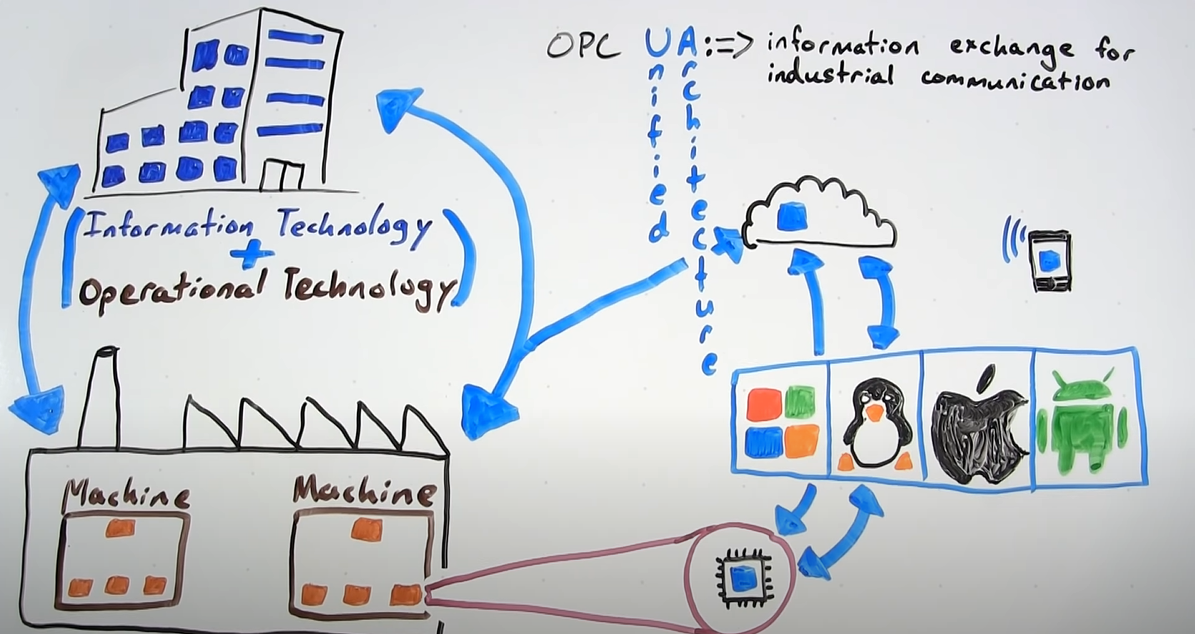 OPC UA :=> information exchange for
industrial communication
Unified
Architecture
Information Technology
+
Operational Technology
Machine
Machine